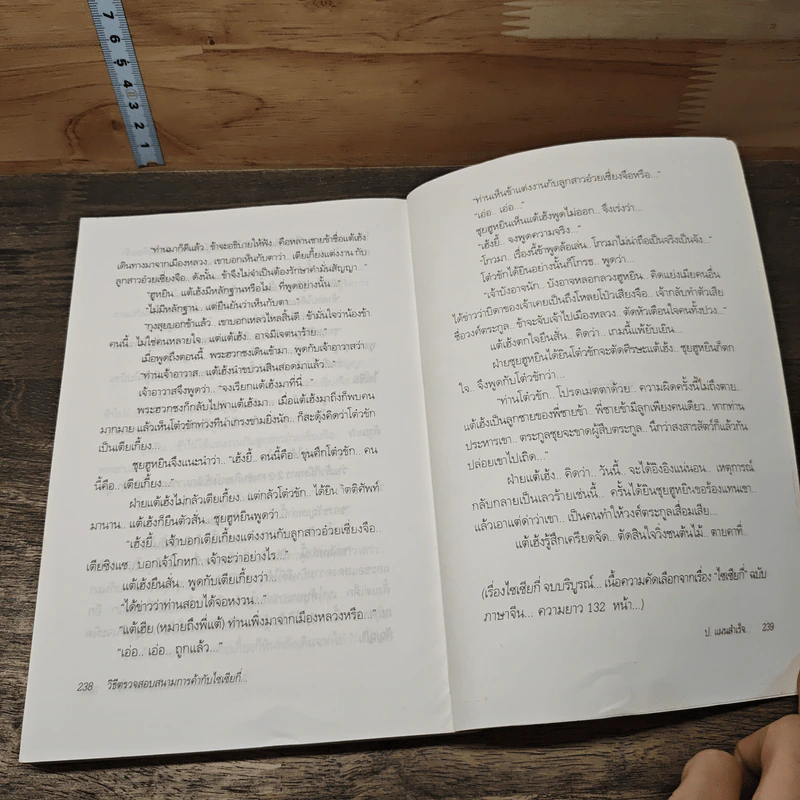 7
6
5
4
3
2
1
"ท่านมาก็ดีแล้ว.. ข้าจะอธิบายให้ฟัง.. คือหลานชายข้าชื่อแต้เฮ้ง
เดินทางมาจากเมืองหลวง.. เขาบอกเห็นกับตาว่า.. เตียเกี้ยงแต่งงาน กับ
ลูกสาวอ๋วยเซี่ยงจือ.. ดังนั้น.. ข้าจึงไม่จำเป็นต้องรักษาคำมั่นสัญญา.."
"ฮูหยิน.. แต้เฮ้งมีหลักฐานหรือไม่.. ที่พูดอย่างนั้น..."
"ไม่มีหลักฐาน.. แต่ยืนยันว่าเห็นกับตา.."
"กุงสุยบอกข้าแล้ว.. เขาบอกเหลวไหลสิ้นดี.. ข้ามั่นใจว่าน้องข้า
คนนี้.. ไม่ใช่คนหลายใจ.. แต่แต้เฮ้ง.. อาจมีเจตนาร้าย..."
เมื่อพูดถึงตอนนี้.. พระฮวกซงเดินเข้ามา.. พูดกับเจ้าอาวาสว่า
"ท่านเจ้าอาวาส.. แต้เฮ้งนำขบวนสินสอดมาแล้ว..."
เจ้าอาวาสจึงพูดว่า.. "จงเรียกแต้เฮ้งมาที่นี่..."
พระฮวกซงก็กลับไปพาแต้เฮ้งมา.. เมื่อแต้เฮ้งมาถึงก็พบคน
มากมาย แล้วเห็นโต๋วขักท่วงทีน่าเกรงขามยิ่งนัก.. ก็สะดุ้งคิดว่าโต๋วขัก
เป็นเตียเกี้ยง..
ชุยฮูหยินจึงแนะนำว่า.. "เฮ้งยี้.. คนนี้คือ.. ขุนศึกโต๋วขัก.. คน
นี้คือ.. เตียเกี้ยง..."
ฝ่ายแต้เฮ้งไม่กลัวเตียเกี้ยง.. แต่กลัวโต๋วขัก.. ได้ยิน กิตติศัพท์
มานาน.. แต้เฮ้งก็ยืนตัวสั่น.. ชุยฮูหยินพูดว่า..
"เฮ้งยี้.. เจ้าบอกเตียเกี้ยงแต่งงานกับลูกสาวอ๋วยเซี่ยงจือ..
เตียซิงแซ.. บอกเจ้าโกหก.. เจ้าจะว่าอย่างไร..."
แต้เฮ้งยืนสั่น.. พูดกับเตียเกี้ยงว่า...
"ได้ข่าวว่าท่านสอบได้จอหงวน..."
"แต้เฮีย (หมายถึงพี่แต้) ท่านเพิ่งมาจากเมืองหลวงหรือ..."
"เอ่อ.. เอ่อ.. ถูกแล้ว..."
238 วิธีตรวจสอบสนามการค้ากับไซเซียกี่...
"ท่านเห็นข้าแต่งงานกับลูกสาวอ๋วยเซี่ยงจือหรือ..."
"เอ่อ.. เอ่อ..."
ชุยฮูหยินเห็นแต้เฮ้งพูดไม่ออก.. จึงเร่งว่า...
"เฮ้งยี้.. จงพูดความจริง..."
"โกวมา.. เรื่องนี้ข้าพูดล้อเล่น.. โกวมาไม่น่าถือเป็นจริงเป็นจัง.."
โต๋วขักได้ยินอย่างนั้นก็โกรธ.. พูดว่า...
"เจ้าบังอาจนัก.. บังอาจหลอกลวงฮูหยิน.. คิดแย่งเมียคนอื่น
ได้ข่าวว่าบิดาของเจ้าเคยเป็นถึงไหลยโป้วเสียงจือ.. เจ้ากลับทำตัวเสีย
ชื่อวงศ์ตระกูล.. ข้าจะจับเจ้าไปเมืองหลวง.. ตัดหัวเตือนใจคนทั้งปวง.."
แต้เฮ้งตกใจยืนสั่น.. คิดว่า.. เกมนี้แพ้ยับเยิน...
ฝ่ายชุยฮูหยินได้ยินโต๋วขักจะตัดศีรษะแต้เฮ้ง.. ชุยฮูหยินก็ตก
ใจ.. จึงพูดกับโต๋วขักว่า...
"ท่านโต๋วขัก.. โปรดเมตตาด้วย.. ความผิดครั้งนี้ไม่ถึงตาย..
แต้เฮ้งเป็นลูกชายของพี่ชายข้า.. พี่ชายข้ามีลูกเพียงคนเดียว.. หากท่าน
ประหารเขา.. ตระกูลชุยจะขาดผู้สืบตระกูล.. นึกว่าสงสารสัตว์ก็แล้วกัน
ปล่อยเขาไปเถิด..."
ฝ่ายแต้เฮ้ง.. คิดว่า.. วันนี้.. จะได้อิงอิงแน่นอน.. เหตุการณ์
กลับกลายเป็นเลวร้ายเช่นนี้... ครั้นได้ยินชุยฮูหยินขอร้องแทนเขา..
แล้วเอาแต่ด่าว่าเขา.. เป็นคนทำให้วงศ์ตระกูลเสื่อมเสีย...
แต้เฮ้งรู้สึกเครียดจัด.. ตัดสินใจวิ่งชนต้นไม้.. ตายคาที่..
(เรื่องไซเซียกี่ จบบริบูรณ์... เนื้อความคัดเลือกจากเรื่อง "ไซเซียกี่" ฉบับ
ภาษาจีน... ความยาว 132 หน้า...)
ป. แผนสำเร็จ 239